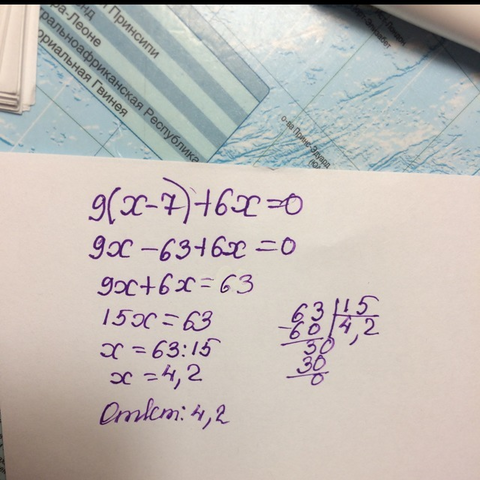 и Принсипи
нд
ра-Леоне
ральноафриканская Республика
ториальная Гвинея
о-ва Принс-Эдуард
9(x-7)+6x=0
9x-63+6x=0
9x+6x=63
15x=63
x=63:15
x=4,2
Ответ: 4,2
63|15
-60|4,2
30
30
0